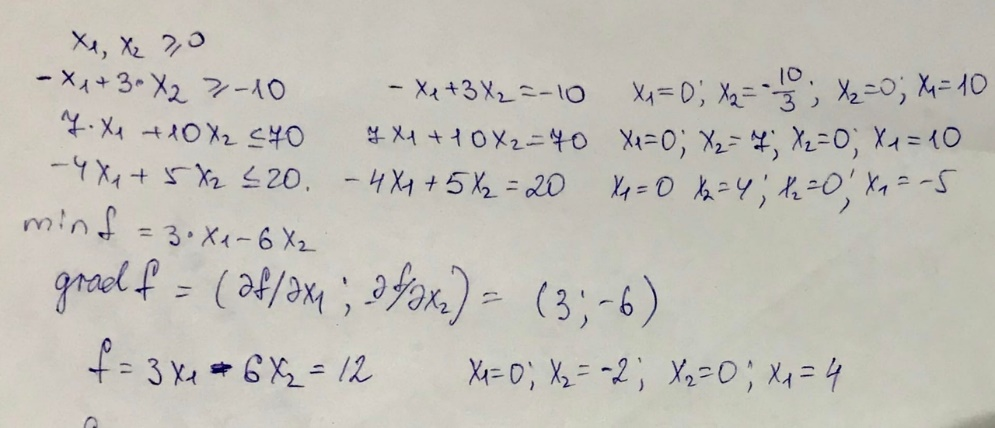 x₁, x₂ ⩾0
-x₁+3·x₂ ⩾-10 -x₁+3x₂=-10 x₁=0; x₂=-10/3; x₂=0; x₁=10
7·x₁+10x₂≤70 7x₁+10x₂=70 x₁=0; x₂=7; x₂=0; x₁=10
-4x₁+5x₂≤20. -4x₁+5x₂=20 x₁=0 x₂=4; x₂=0; x₁=-5
min f = 3·x₁-6x₂
grad f = (∂f/∂x₁; ∂f/∂x₂) = (3;-6)
f=3x₁-6x₂=12 x₁=0; x₂=-2; x₂=0; x₁=4